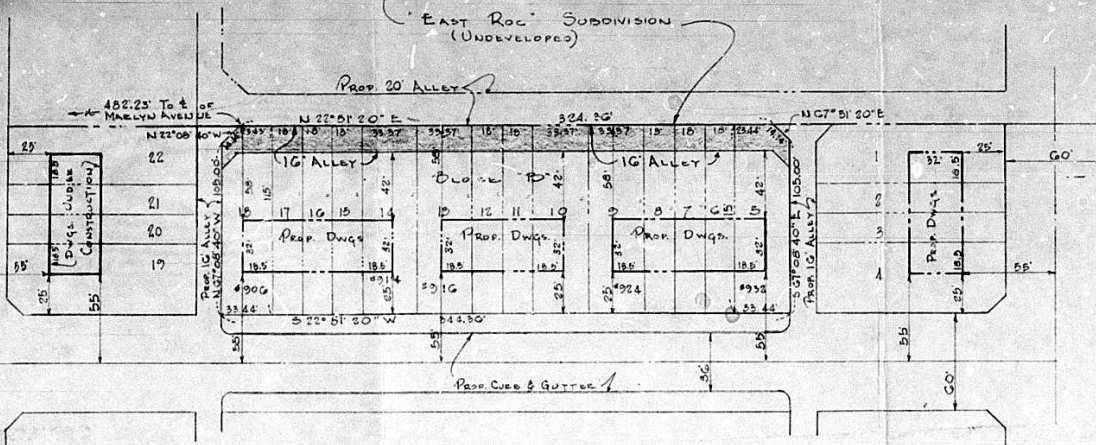 "EAST ROC" SUBDIVISION
(UNDEVELOPED)
PROP. 20' ALLEY
482.23' TO ℄ OF
MARLYN AVENUE
N 22° 51' 20" E
324.36'
N 67° 51' 20" E
N 22° 08' 40" W
23.43' 18' 18' 18' 33.37' 33.37' 18' 18' 33.37' 33.37' 18' 18' 18' 23.44'
16' ALLEY
16' ALLEY
BLOCK "B"
25'
18.5'
22
21
20
19
(DWGS. UNDER
CONSTRUCTION)
18.5'
55'
25'
55'
PROP. 16' ALLEY
N 67° 08' 40" W
105.00'
58'
115'
42'
58'
42'
58'
42'
18 17 16 15 14
13 12 11 10
9 8 7 6 5
15'
PROP. DWGS.
PROP. DWGS.
PROP. DWGS.
32'
32'
32'
32'
32'
32'
18.5'
18.5'
18.5'
18.5'
18.5'
18.5'
#906
#914
#916
#924
#932
25'
25'
25'
33.44'
33.44'
S 22° 51' 20" W
344.36'
S 67° 08' 40" E
105.00'
PROP. 16' ALLEY
1
2
3
4
32'
18.5'
25'
60'
PROP. DWGS.
18.5'
55'
25'
55'
55'
55'
55'
36'
60'
PROP. CURB & GUTTER